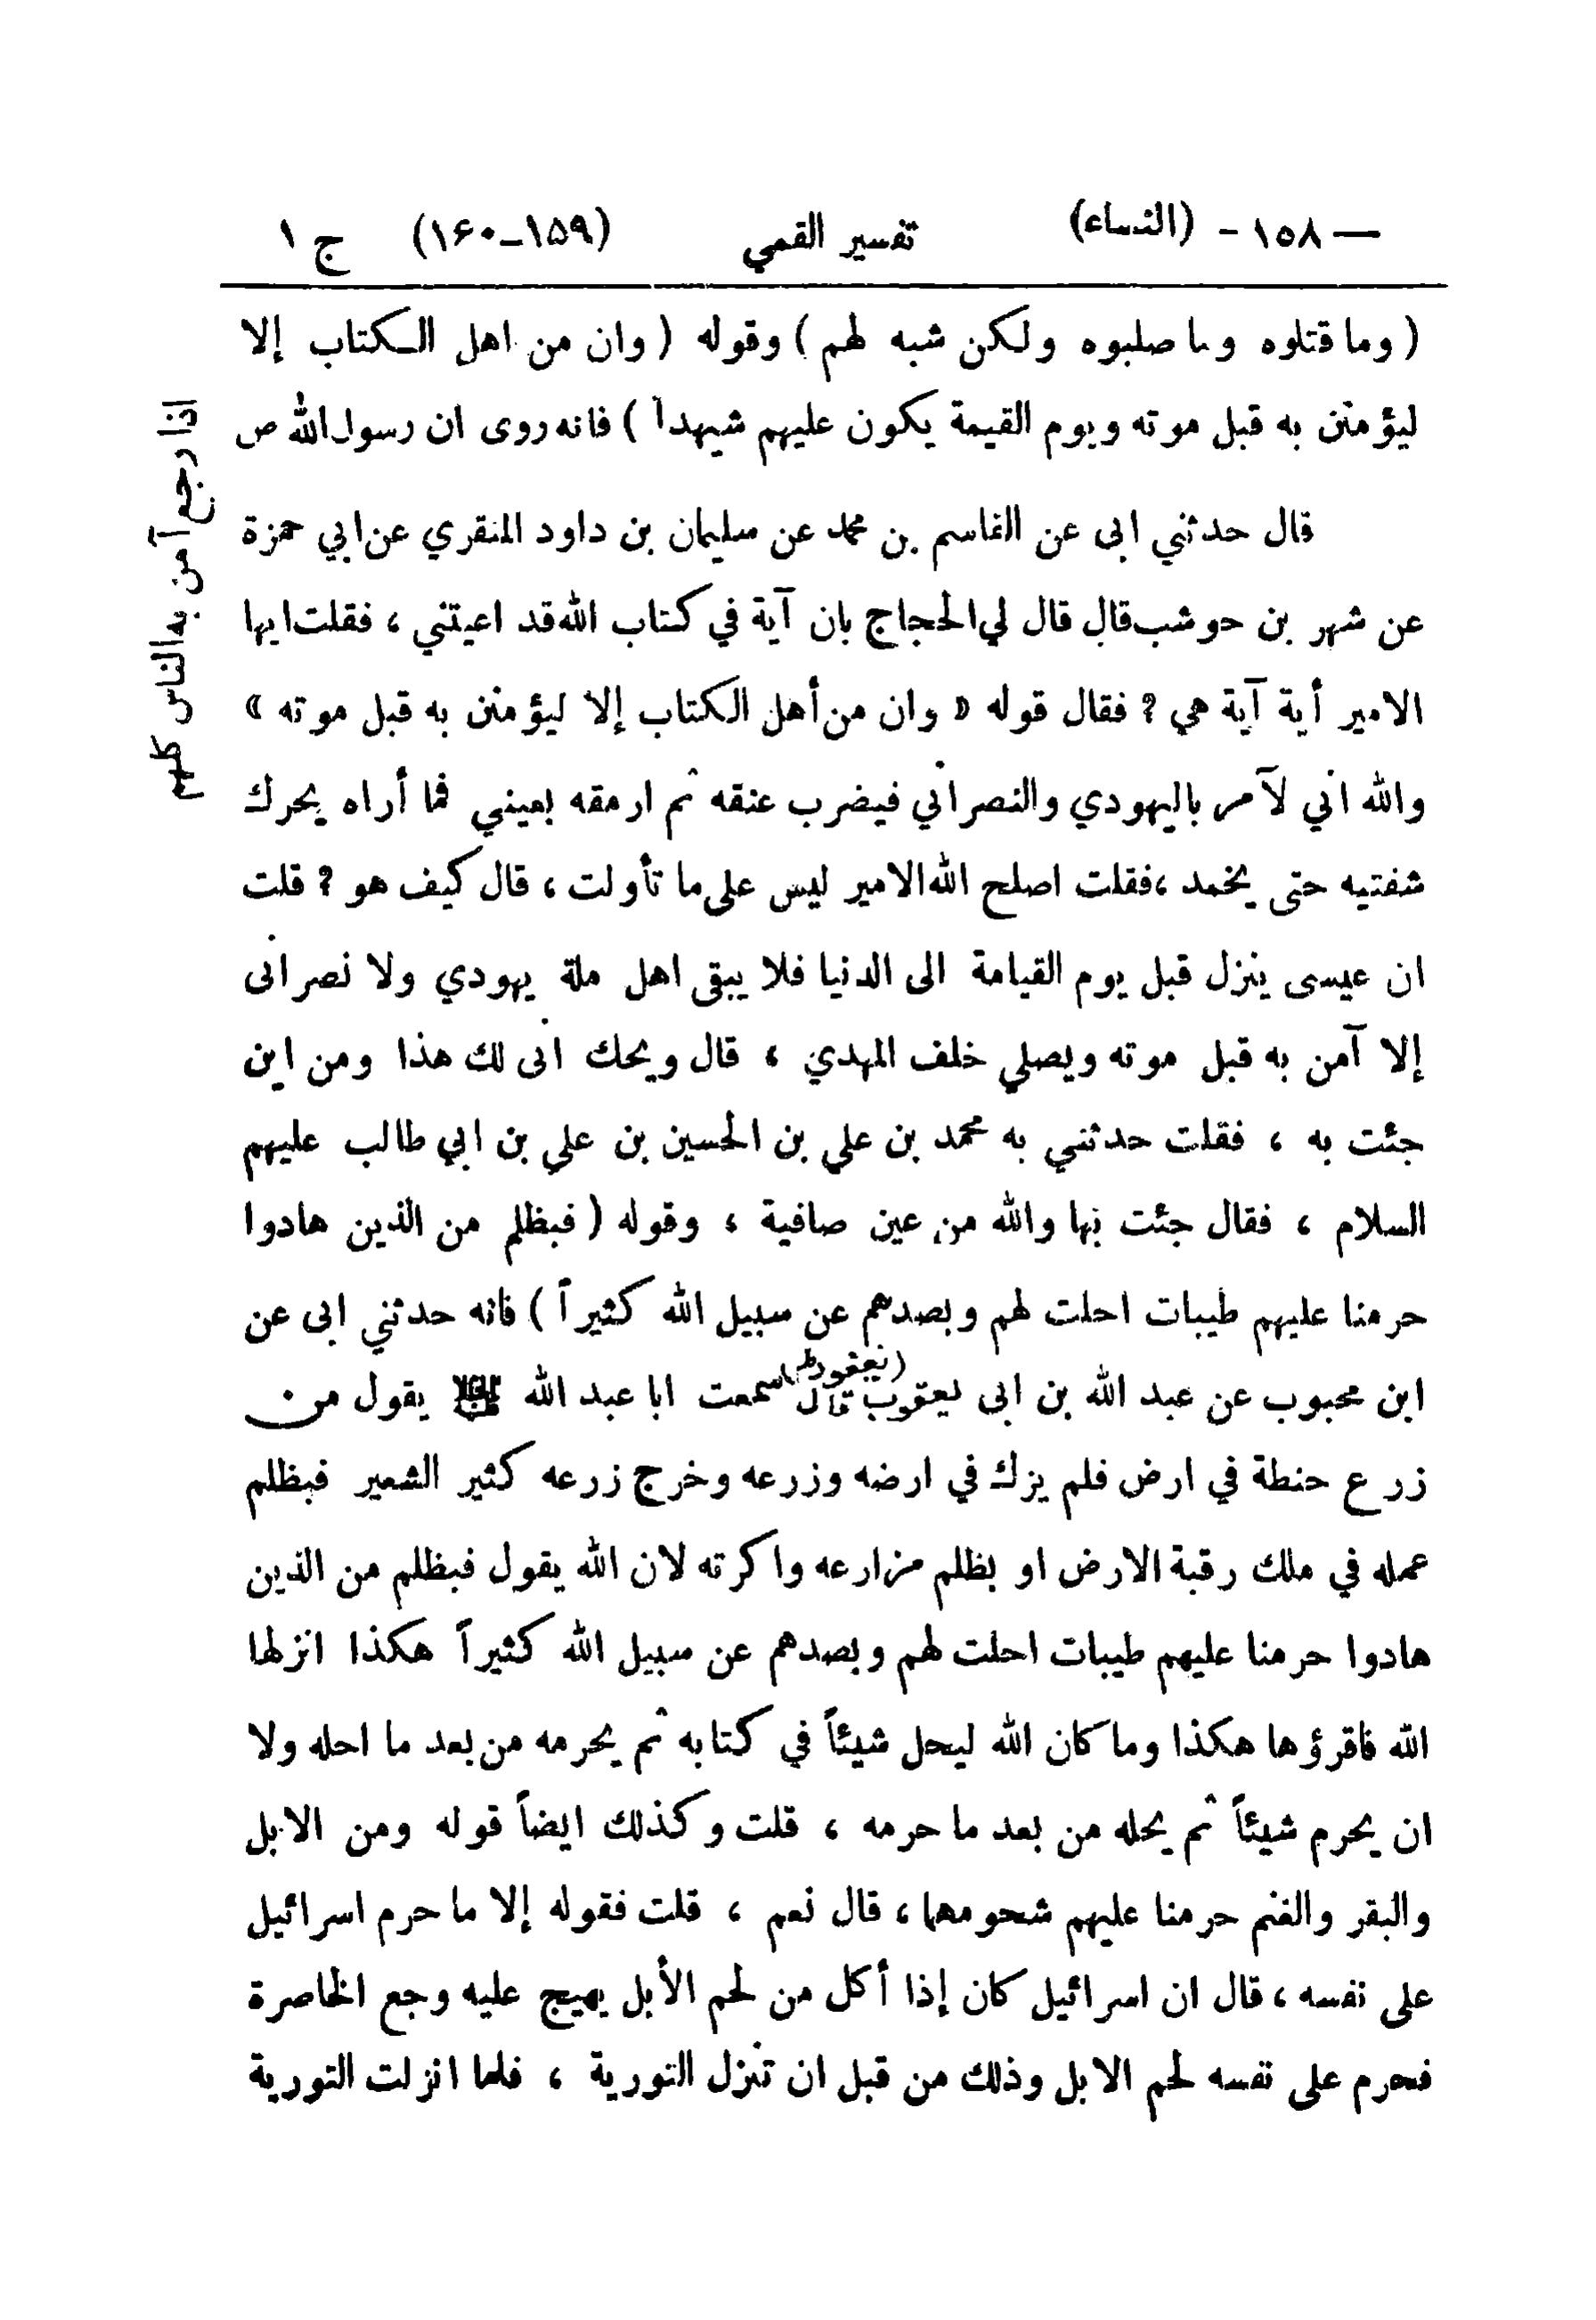 — ١٥٨ - (النساء) تفسير القمي (١٥٩-١۶٠) ج ١
( وما قتلوه وما صلبوه ولكن شبه لهم ) وقوله ( وان من اهل الكتاب إلا
ليؤمنن به قبل موته ويوم القيمة يكون عليهم شهيداً ) فانه روى ان رسول الله ص
اذا رجع آمن به الناس كلهم
قال حدثني ابى عن القاسم بن محمد عن سليمان بن داود المنقري عن ابي حمزة
عن شهر بن حوشب قال قال لي الحجاج بان آية في كتاب الله قد اعيتني ، فقلت ايها
الامير أية آية هي ? فقال قوله « وان من أهل الكتاب إلا ليؤمنن به قبل موته »
والله اني لآمر باليهودي والنصراني فيضرب عنقه ثم ارمقه بعيني فما أراه يحرك
شفتيه حتى يخمد ، فقلت اصلح الله الامير ليس على ما تأولت ، قال كيف هو ? قلت
ان عيسى ينزل قبل يوم القيامة الى الدنيا فلا يبقى اهل ملة يهودي ولا نصرانى
إلا آمن به قبل موته ويصلي خلف المهدي ، قال ويحك انى لك هذا ومن اين
جئت به ، فقلت حدثني به محمد بن علي بن الحسين بن علي بن ابي طالب عليهم
السلام ، فقال جئت بها والله من عين صافية ، وقوله ( فبظلم من الذين هادوا
حرمنا عليهم طيبات احلت لهم وبصدهم عن سبيل الله كثيراً ) فانه حدثني ابى عن
ابن محبوب عن عبد الله بن ابى يعقوب قال سمعت ابا عبد الله عليه السلام يقول من
زرع حنطة في ارض فلم يزك في ارضه وزرعه وخرج زرعه كثير الشعير فبظلم
عمله في ملك رقبة الارض او بظلم مزارعه واكرته لان الله يقول فبظلم من الذين
هادوا حرمنا عليهم طيبات احلت لهم وبصدهم عن سبيل الله كثيراً هكذا انزلها
الله فاقرؤها هكذا وما كان الله ليحل شيئاً في كتابه ثم يحرمه من بعد ما احله ولا
ان يحرم شيئاً ثم يحله من بعد ما حرمه ، قلت وكذلك ايضاً قوله ومن الابل
والبقر والغنم حرمنا عليهم شحومهما ، قال نعم ، قلت فقوله إلا ما حرم اسرائيل
على نفسه ، قال ان اسرائيل كان إذا أكل من لحم الأبل يهيج عليه وجع الخاصرة
فحرم على نفسه لحم الابل وذلك من قبل ان تنزل التورية ، فلما انزلت التورية